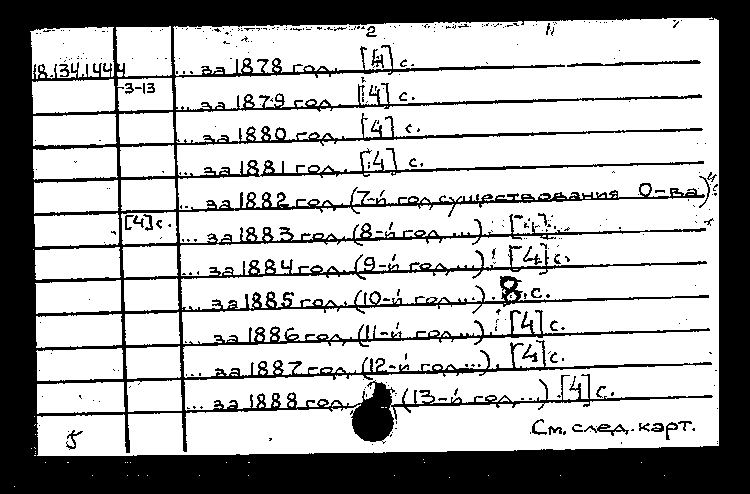 2
18.134.1444 ... за 1878 год. [4] с.
-3-13
... за 1879 год. [4] с.
... за 1880 год. [4] с.
... за 1881 год. [4] с.
... за 1882 год. (7-й год существования О-ва)
[4] с.
... за 1883 год. (8-й год ...). [4].
... за 1884 год. (9-й год ...). [4] с.
... за 1885 год. (10-й год ...). 8. с.
... за 1886 год. (11-й год ...). [4] с.
... за 1887 год. (12-й год ...). [4] с.
... за 1888 год. (13-й год ...) [4] с.
5
См. след. карт.